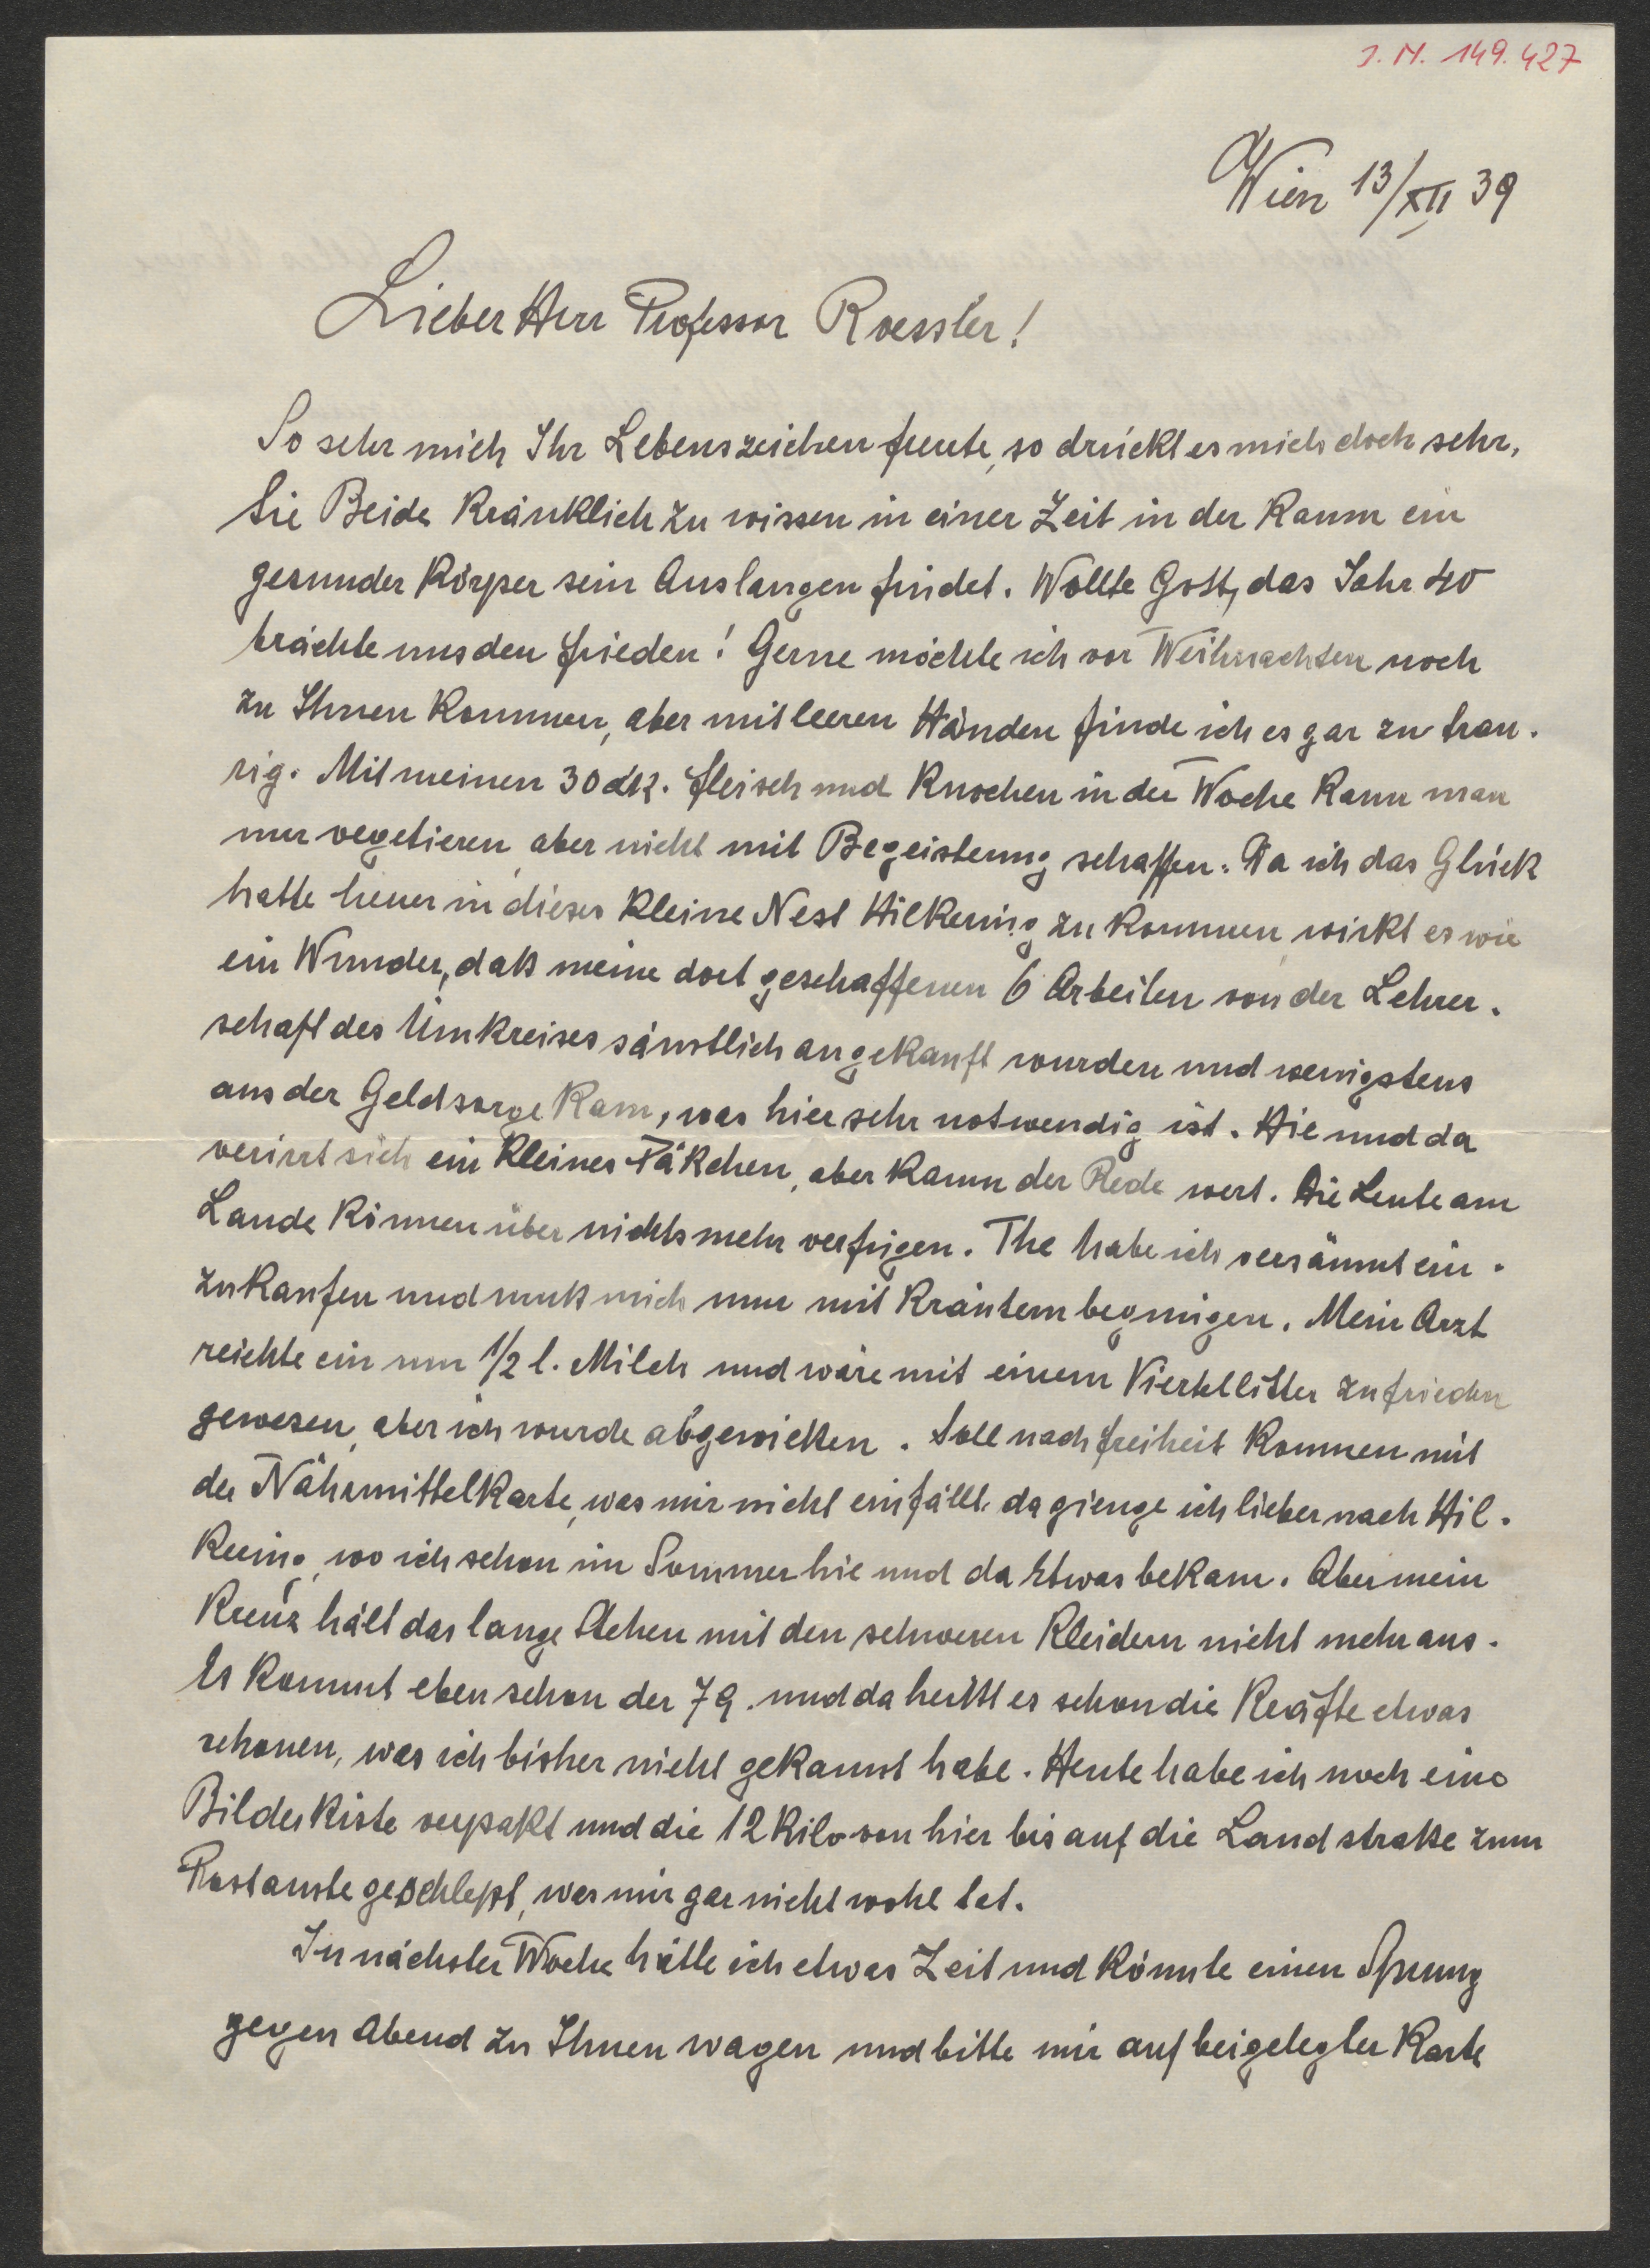 I. N. 149.427
Wien 13/XII 39
Lieber Herr Professor Roessler!
So sehr mich Ihr Lebenszeichen freute, so drückt es mich doch sehr,
Sie Beide kränklich zu wissen in einer Zeit in der kaum ein
gesunder Körper sein Auslangen findet. Wollte Gott, das Jahr 40
brächte uns den Frieden! Gerne möchte ich vor Weihnachten noch
zu Ihnen kommen, aber mit leeren Händen finde ich es gar zu trau-
rig. Mit meinen 30 dk. Fleisch und Knochen in der Woche kann man
nur vegetieren, aber nicht mit Begeisterung schaffen. Da ich das Glück
hatte heuer in dieses kleine Nest Hilkering zu kommen, wirkt es wie
ein Wunder, daß meine dort geschaffenen 6 Arbeiten von der Lehrer-
schaft des Umkreises sämtlich angekauft wurden und wenigstens
aus der Geldsorge kam, was hier sehr notwendig ist. Hie und da
verirrt sich ein kleines Päkchen, aber kaum der Rede wert. Die Leute am
Lande können über nichts mehr verfügen. The habe ich versäumt ein-
zukaufen und muß mich nun mit Kräutern begnügen. Mein Arzt
reichte ein um 1/2 l. Milch und wäre mit einem Viertelliter zufrieden
gewesen, aber ich wurde abgewießen. Soll nach Freiheit kommen mit
der Nährmittelkarte, was mir nicht einfällt, da gienge ich lieber nach Hil-
kering, wo ich schon im Sommer hie und da Etwas bekam. Aber mein
Kreuz hält das lange Stehen mit den schweren Kleidern nicht mehr aus.
Es kommt eben schon der 79. und da heißt es schon die Kräfte etwas
schonen, was ich bisher nicht gekannt habe. Heute habe ich noch eine
Bilderkiste verpakt und die 12 Kilo von hier bis auf die Landstraße zum
Postamte geschlept, was mir gar nicht wohl tat.
In nächster Woche hätte ich etwas Zeit und könnte einen Sprung
gegen Abend zu Ihnen wagen und bitte mir auf beigelegter Karte